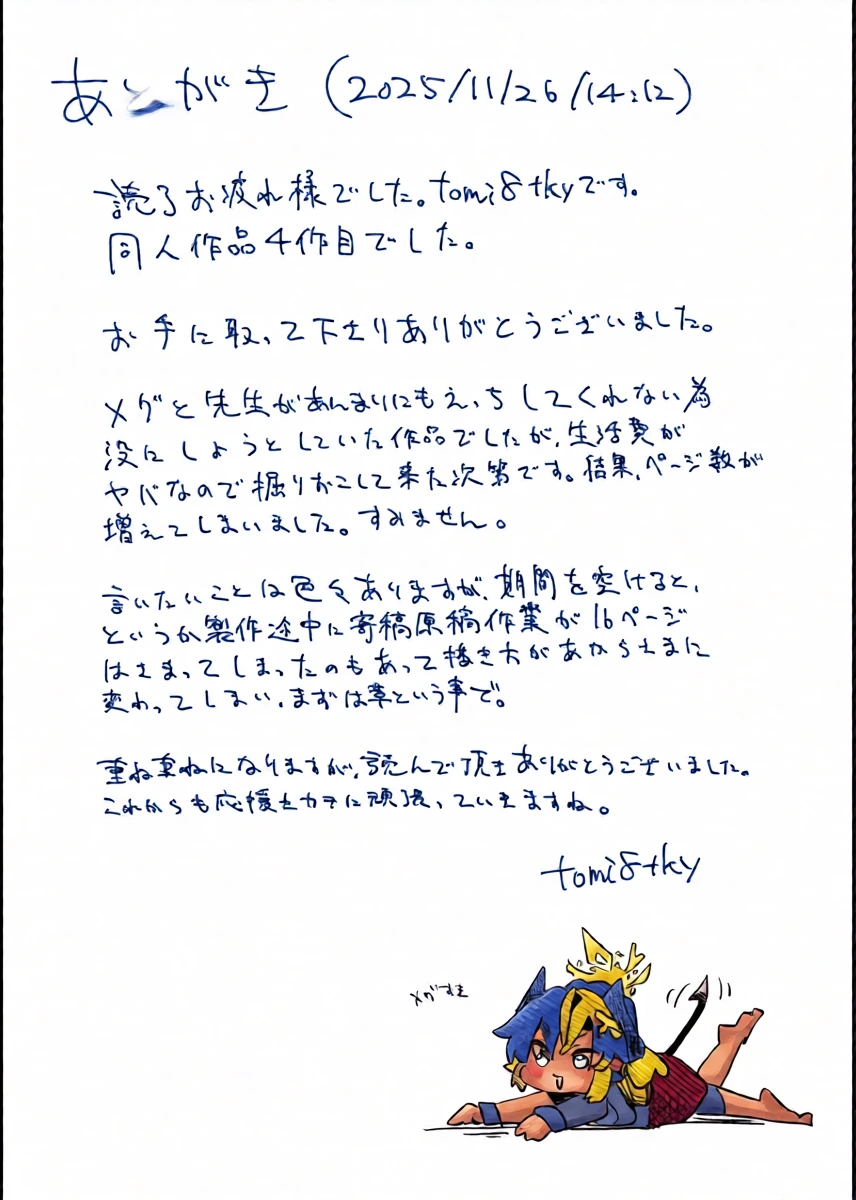 あとがき (2025/11/26/14:12)
読了お疲れ様でした。tomi8tkyです。
同人作品4作目でした。
お手に取って下さりありがとうございました。
メグと先生があんまりにもえっちしてくれない為
没にしようとしていた作品でしたが、生活費が
ヤバなので掘りおこして来た次第です。結果、ページ数が
増えてしまいました。すみません。
言いたいことは色々ありますが、期間を空けると、
というか製作途中に寄稿原稿作業が16ページ
はさまってしまったのもあって描き方があからさまに
変わってしまい、まずは草という事で。
重ね重ねになりますが、読んで頂きありがとうございました。
これからも応援をカテに頑張っていきますね。
tomi8tky
メグすき